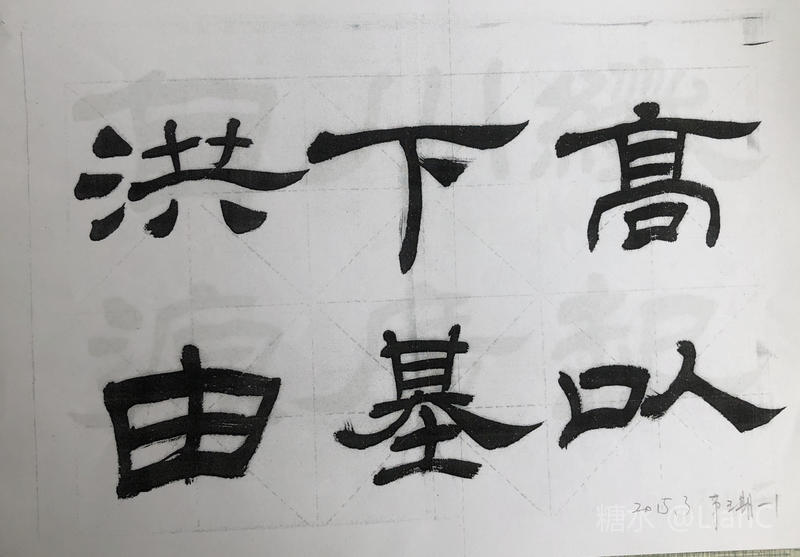 高以
下基
洪由
2015.3 第三期-1
糖水 @LianC